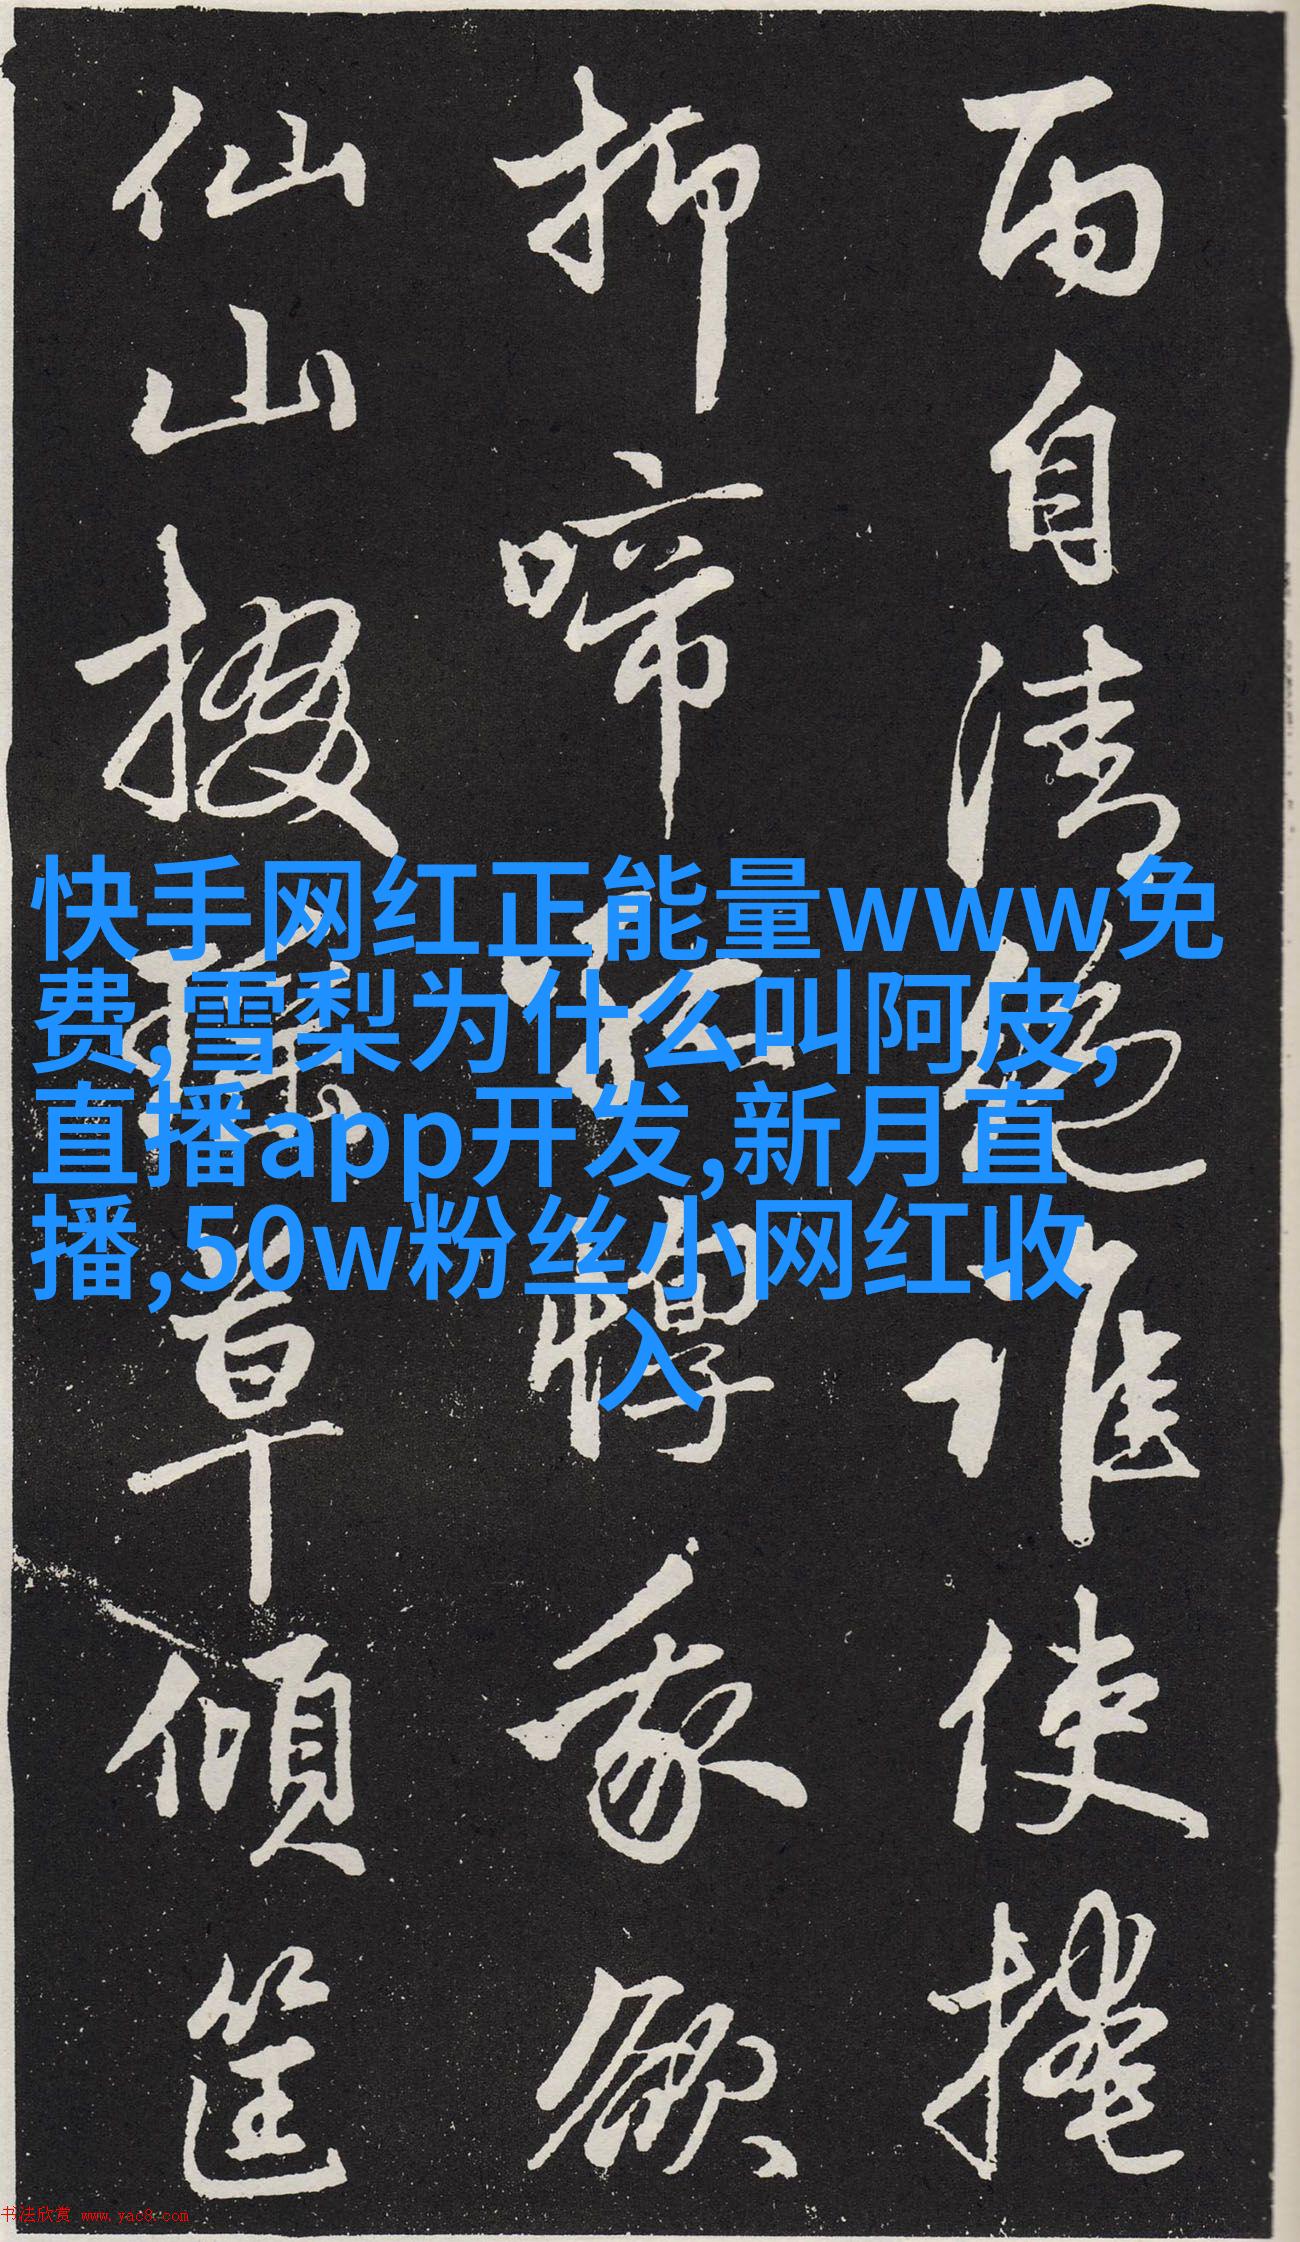 雨自清絶誰使掩
抑啼孤惸我欲
仙山掇瑤草傾筐
快手网红正能量www免
费,雪梨为什么叫阿皮,
直播app开发,新月直
播,50w粉丝小网红收
入
书法欣赏 www.yac8.com